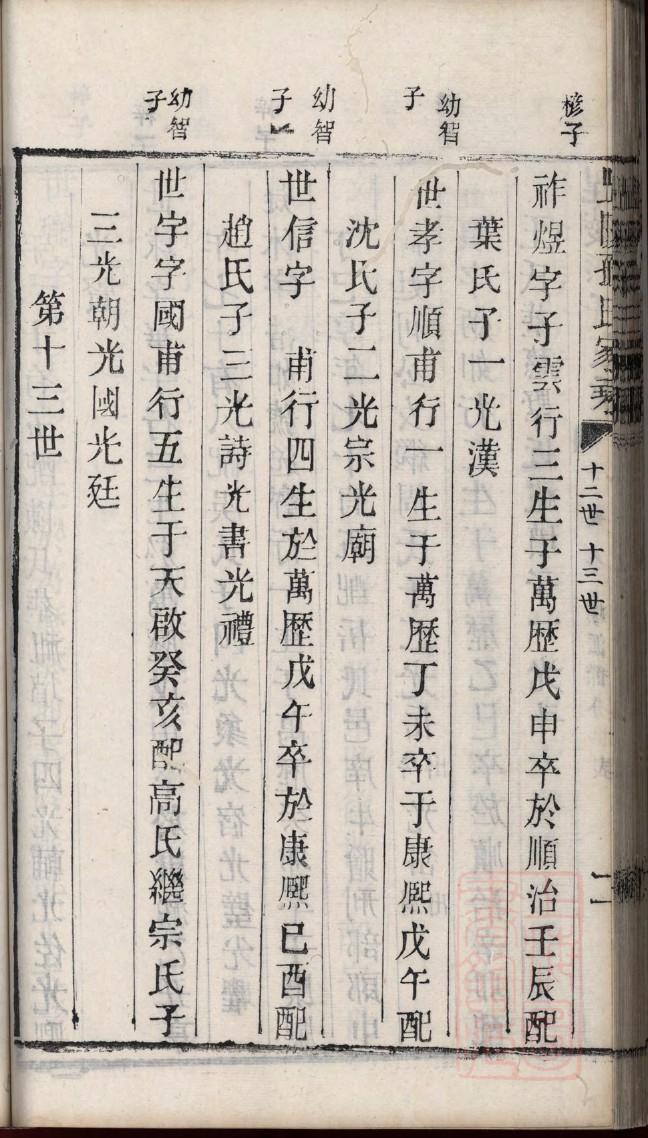 孫氏家
十二世 十三世
二
椮子
祚煜字子雲行三生于萬歷戊申卒於順治壬辰配
葉氏子一光漢
幼智子
世孝字順甫行一生于萬歷丁未卒于康熙戊午配
沈氏子二光宗光廟
幼智子
世信字 甫行四生於萬歷戊午卒於康熙己酉配
趙氏子三光詩光書光禮
幼智子
世宇字國甫行五生于天啟癸亥配高氏繼宗氏子
三光朝光國光廷
第十三世